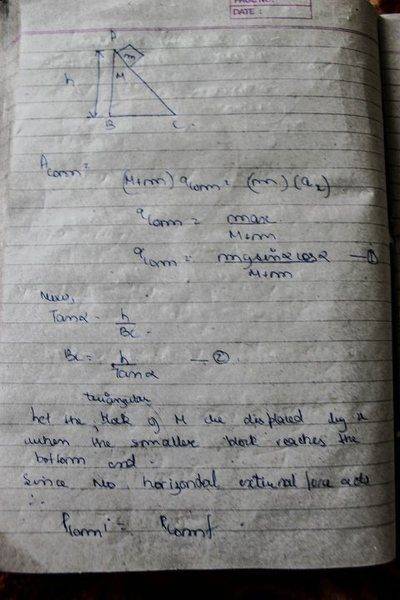 PAGE NO.:
DATE :
P
m
h
M
B
C
Acom =
(M+m) acom = (m) (ax)
acom = max
M+m
acom = mg sinα cosα — ①
M+m
Now,
Tanα = h
BC
BC = h — ②
Tanα
triangular
Let the block of M be displaced by x
when the smaller block reaches the
bottom end.
Since No horizontal external force acts
∴
Pcom i = Pcom f